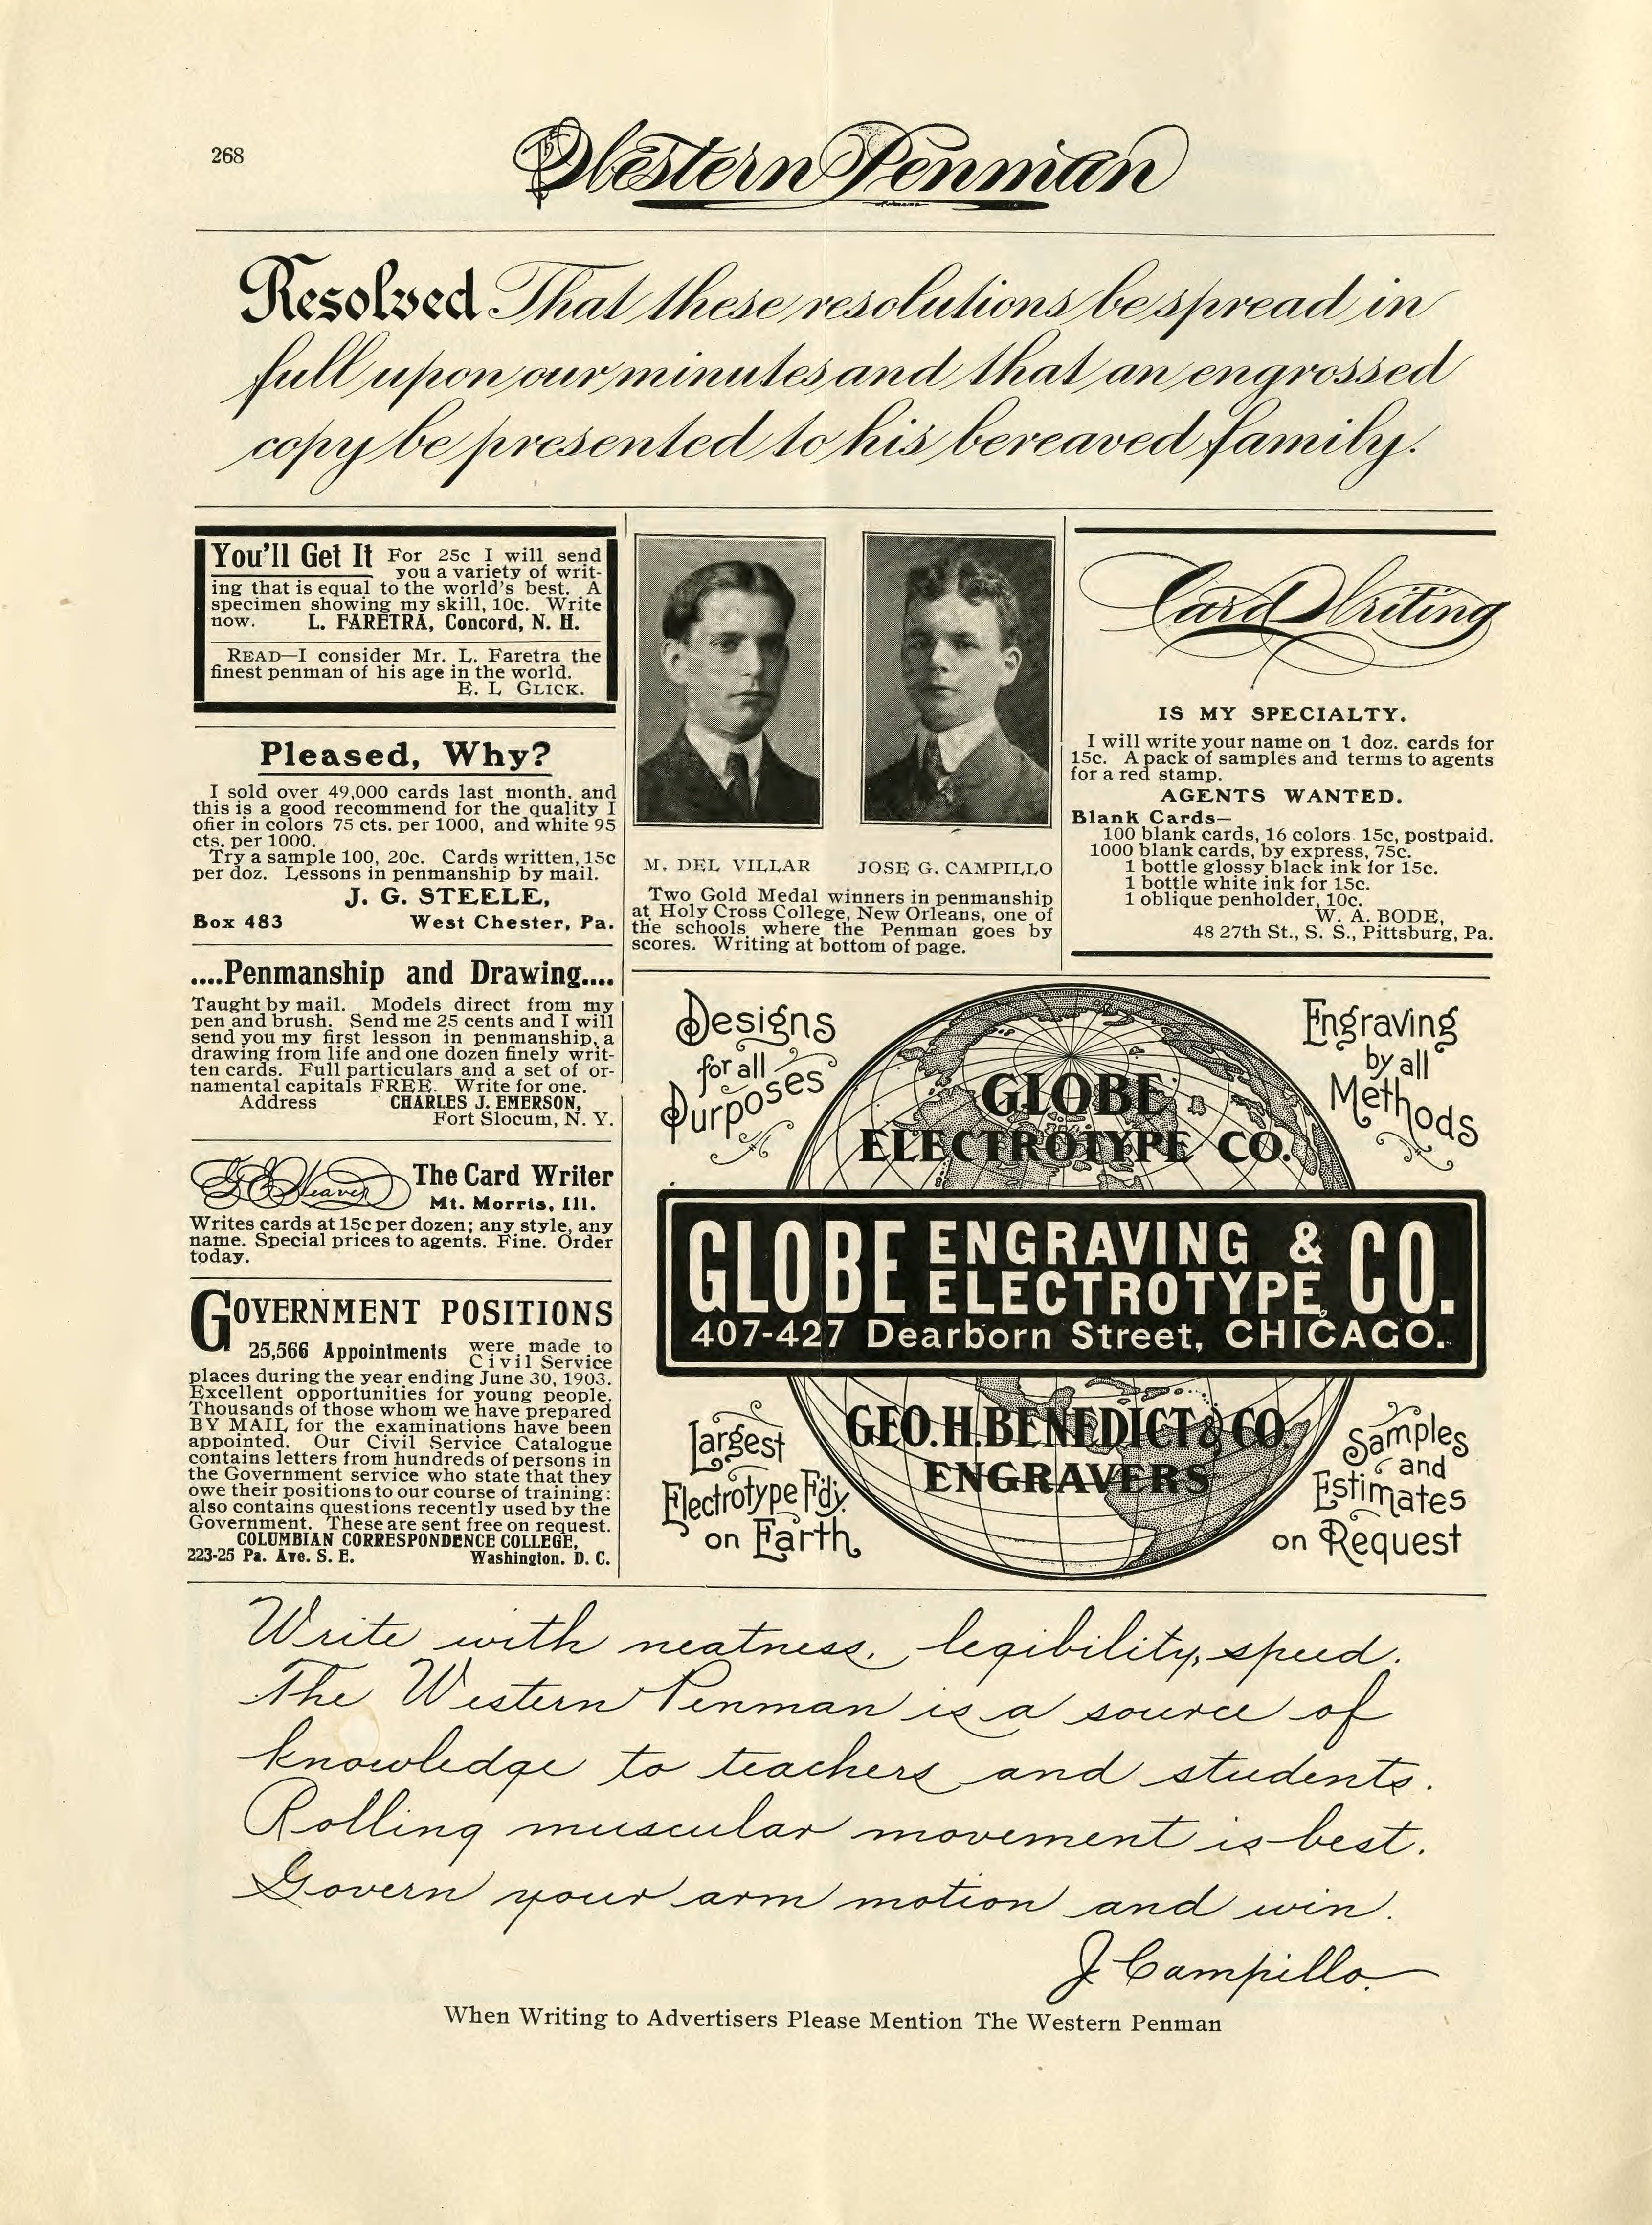 268
The Western Penman
Resolved That these resolutions be spread in
full upon our minutes and that an engrossed
copy be presented to his bereaved family.
You'll Get It For 25c I will send
you a variety of writ-
ing that is equal to the world's best. A
specimen showing my skill, 10c. Write
now. L. FARETRA, Concord, N. H.
READ—I consider Mr. L. Faretra the
finest penman of his age in the world.
E. L GLICK.
Pleased, Why?
I sold over 49,000 cards last month. and
this is a good recommend for the quality I
ofier in colors 75 cts. per 1000, and white 95
cts. per 1000.
Try a sample 100, 20c. Cards written, 15c
per doz. Lessons in penmanship by mail.
J. G. STEELE,
Box 483 West Chester, Pa.
....Penmanship and Drawing....
Taught by mail. Models direct from my
pen and brush. Send me 25 cents and I will
send you my first lesson in penmanship, a
drawing from life and one dozen finely writ-
ten cards. Full particulars and a set of or-
namental capitals FREE. Write for one.
Address CHARLES J. EMERSON,
Fort Slocum, N. Y.
G E Weaver The Card Writer
Mt. Morris, Ill.
Writes cards at 15c per dozen; any style, any
name. Special prices to agents. Fine. Order
today.
GOVERNMENT POSITIONS
25,566 Appointments were made to
Civil Service
places during the year ending June 30, 1903.
Excellent opportunities for young people.
Thousands of those whom we have prepared
BY MAIL for the examinations have been
appointed. Our Civil Service Catalogue
contains letters from hundreds of persons in
the Government service who state that they
owe their positions to our course of training:
also contains questions recently used by the
Government. These are sent free on request.
COLUMBIAN CORRESPONDENCE COLLEGE,
223-25 Pa. Ave. S. E. Washington. D. C.
M. DEL VILLAR JOSE G. CAMPILLO
Two Gold Medal winners in penmanship
at Holy Cross College, New Orleans, one of
the schools where the Penman goes by
scores. Writing at bottom of page.
Card Writing
IS MY SPECIALTY.
I will write your name on 1 doz. cards for
15c. A pack of samples and terms to agents
for a red stamp.
AGENTS WANTED.
Blank Cards—
100 blank cards, 16 colors 15c, postpaid.
1000 blank cards, by express, 75c.
1 bottle glossy black ink for 15c.
1 bottle white ink for 15c.
1 oblique penholder, 10c.
W. A. BODE,
48 27th St., S. S., Pittsburg, Pa.
Designs
for all
Purposes
Engraving
by all
Methods
GLOBE
ELECTROTYPE CO.
GLOBE ENGRAVING & ELECTROTYPE CO.
407-427 Dearborn Street, CHICAGO.
GEO. H. BENEDICT & CO.
ENGRAVERS
Largest
Electrotype F'dy.
on Earth
Samples
and
Estimates
on Request
Write with neatness, legibility, speed.
The Western Penman is a source of
knowledge to teachers and students.
Rolling muscular movement is best.
Govern your arm motion and win.
J. Campillo.
When Writing to Advertisers Please Mention The Western Penman